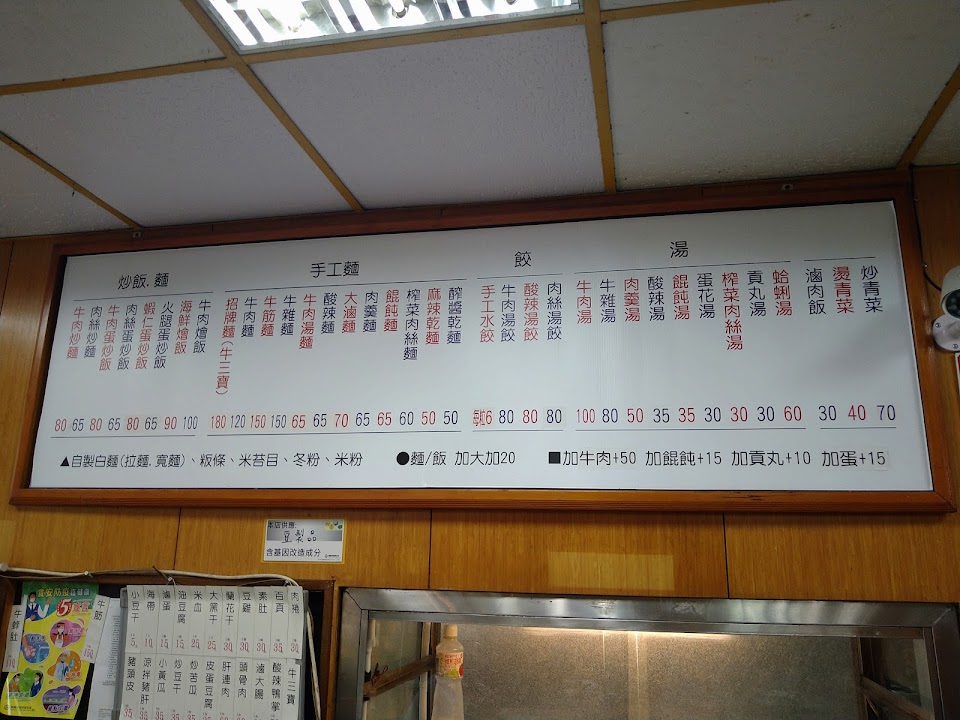 炒飯.麵
牛肉炒麵 80
肉絲炒麵 65
牛肉蛋炒飯 80
肉絲蛋炒飯 65
蝦仁蛋炒飯 80
火腿蛋炒飯 65
海鮮燴飯 90
牛肉燴飯 100
手工麵
招牌麵(牛三寶) 180
牛肉麵 120
牛筋麵 150
牛雜麵 150
牛肉湯麵 65
酸辣麵 65
大滷麵 70
肉羹麵 65
餛飩麵 65
榨菜肉絲麵 60
麻辣乾麵 50
醡醬乾麵 50
餃
手工水餃 每粒6
牛肉湯餃 80
酸辣湯餃 80
肉絲湯餃 80
湯
牛肉湯 100
牛雜湯 80
肉羹湯 50
酸辣湯 35
餛飩湯 35
蛋花湯 30
榨菜肉絲湯 30
貢丸湯 30
蛤蜊湯 60
滷肉飯 30
燙青菜 40
炒青菜 70
▲自製白麵(拉麵.寬麵)、粄條、米苔目、冬粉、米粉
●麵/飯 加大加20
■加牛肉+50 加餛飩+15 加貢丸+10 加蛋+15
本店供應:
豆製品
含基因改造成分
牛蜂肚
牛筋
小豆干 5
海帶 10
滷蛋 15
油豆腐 15
米血 25
大黑干 25
蘭花干 30
豆雞 30
素肚 30
百頁 35
肉捲 30
豬頭皮 35
涼拌豬肝
小黃瓜 35
炒豆干
炒苦瓜
皮蛋豆腐
肝連肉
頭骨肉
滷大腸
酸辣鴨掌
牛三寶